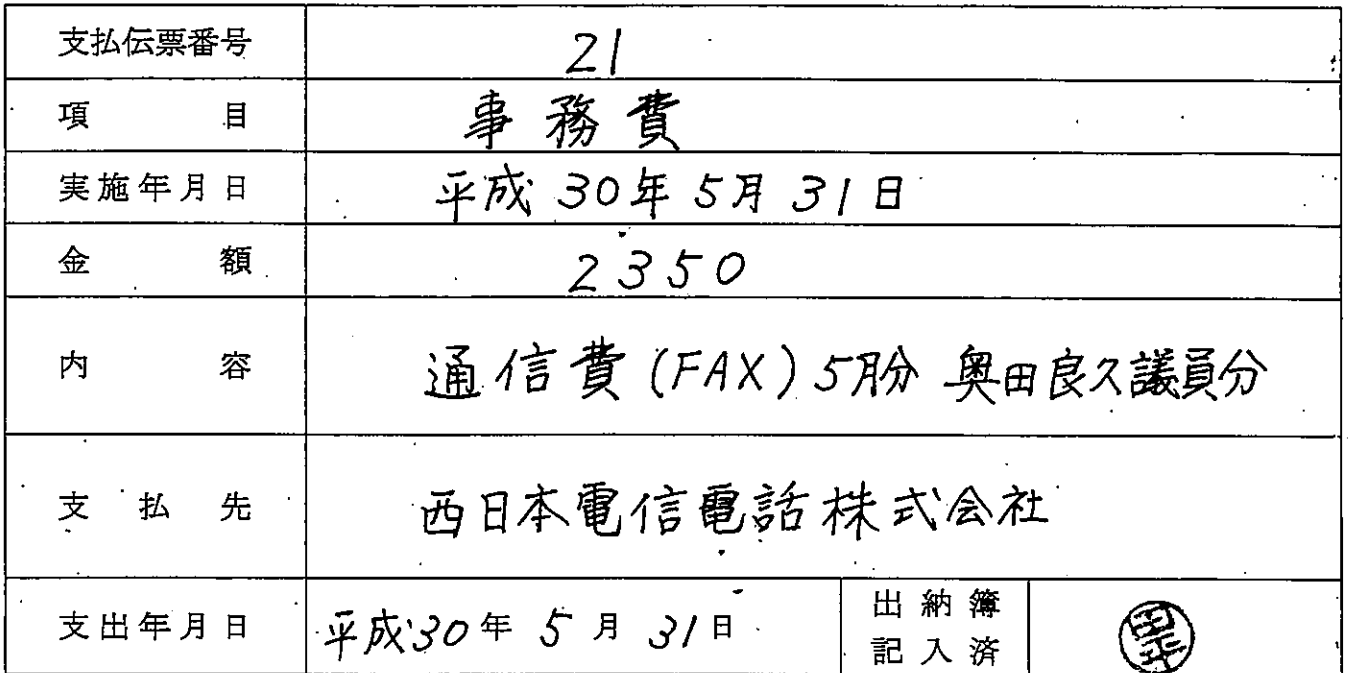 支払伝票番号 21
項目 事務費
実施年月日 平成30年5月31日
金額 2350
内容 通信費(FAX)5月分 奥田良久議員分
支払先 西日本電信電話株式会社
支出年月日 平成30年5月31日 出納簿
記入済